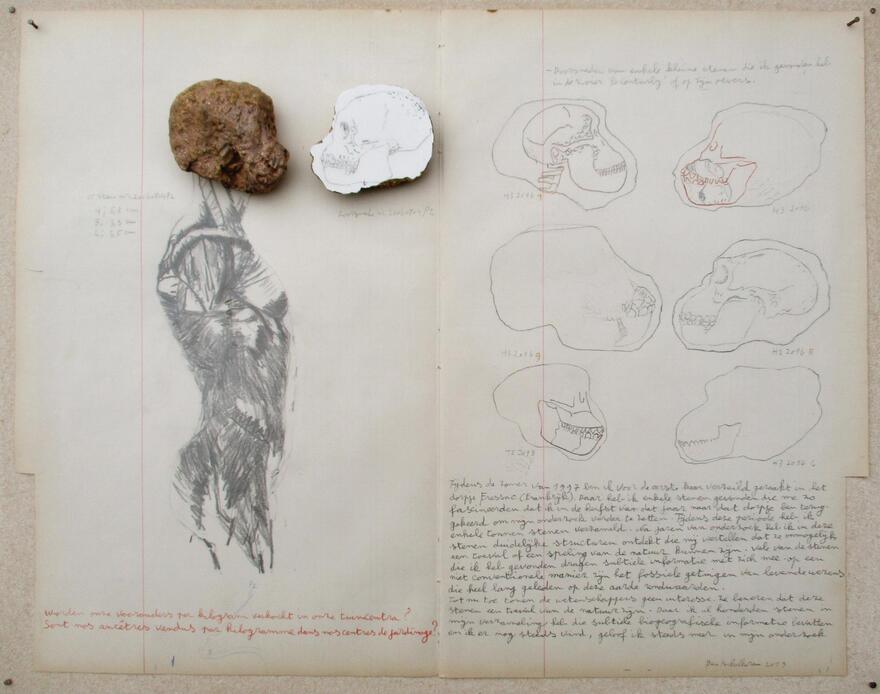 - Doorsneden van enkele kleine stenen die ik gevonden heb
in de zomer of op zijn revers.
HS 2096
HS 2096
HS 2096 g
HS 2096 E
HS 2096 C
Tijdens de zomer van 1997 ben ik voor de eerste keer verzeild geraakt in het
dorpje Fressac (Frankrijk). Daar heb ik enkele stenen gevonden die me zo
fascineerden dat ik in de herfst van dat jaar naar dat dorpje ben terug-
gekeerd om mijn onderzoek verder te zetten. Tijdens deze periode heb ik
enkele tonnen stenen verzameld. Na jaren van onderzoek heb ik in deze
stenen duidelijke structuren ontdekt die mij vertellen dat ze onmogelijk
een toeval of een speling van de natuur kunnen zijn. Vele van de stenen
die ik heb gevonden dragen subtiele informatie met zich mee. op een
niet conventionele manier zijn het fossiele getuigen van levende wezens
die heel lang geleden op deze aarde rondwaarden.
Tot nu toe tonen de wetenschappers geen interesse. Ze beweren dat deze
stenen een toeval van de natuur zijn. Daar ik al honderden stenen in
mijn verzameling heb die subtiele biogeografische informatie bevatten
en ik er nog steeds vind, geloof ik steeds meer in mijn onderzoek
Worden onze voorouders per kilogram verkocht in onze tuincentra?
Sont nos ancêtres vendus par kilogramme dans nos centres de jardinage?